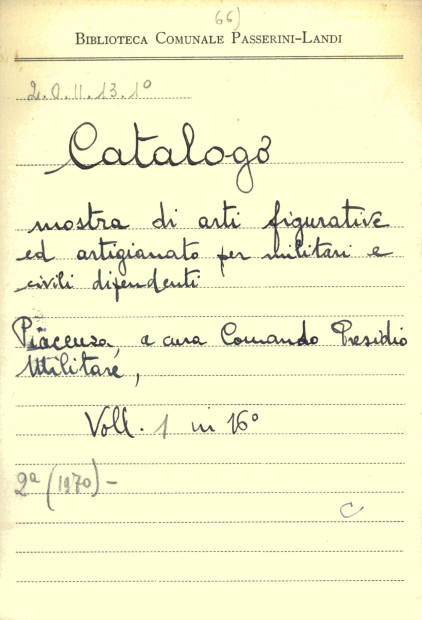 66)
BIBLIOTECA COMUNALE PASSERINI-LANDI
2.O.II.13.1°
Catalogo
mostra di arti figurative
ed artigianato per militari e
civili dipendenti
Piacenza, a cura Comando Presidio
Militare,
Voll. 1 in 16°
2ª (1970) -
C